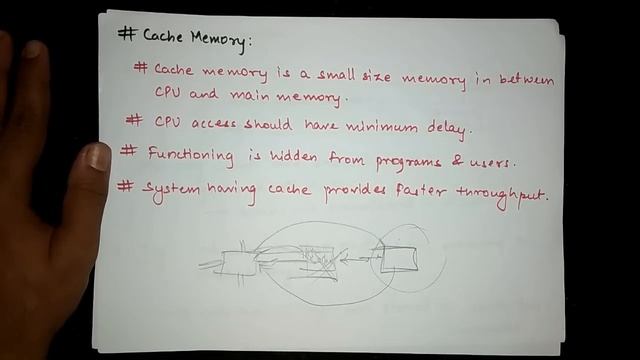 # Cache Memory:
# Cache memory is a small size memory in between
CPU and main memory.
# CPU access should have minimum delay.
# Functioning is hidden from programs & users.
# System having cache provides faster throughput.